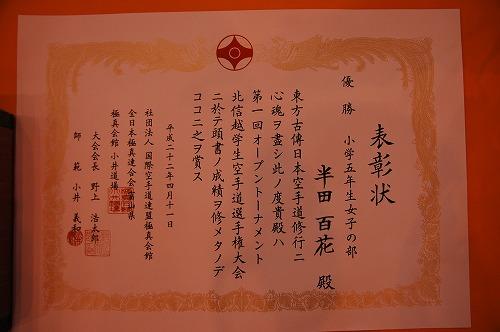 表彰状
優勝 小学五年生女子の部
半田百花 殿
東方古傳日本空手道修行ニ
心魂ヲ盡シ此ノ度貴殿ハ
第一回オープントーナメント
北信越学生空手道選手権大会
ニ於テ頭書ノ成績ヲ修メタノデ
ココニ之ヲ賞ス
平成二十二年四月十一日
社団法人 国際空手道連盟極真会館
全日本極真連合会富山県
極真会館 小井道場
大会会長 野上 浩太郎
師範 小井 義和